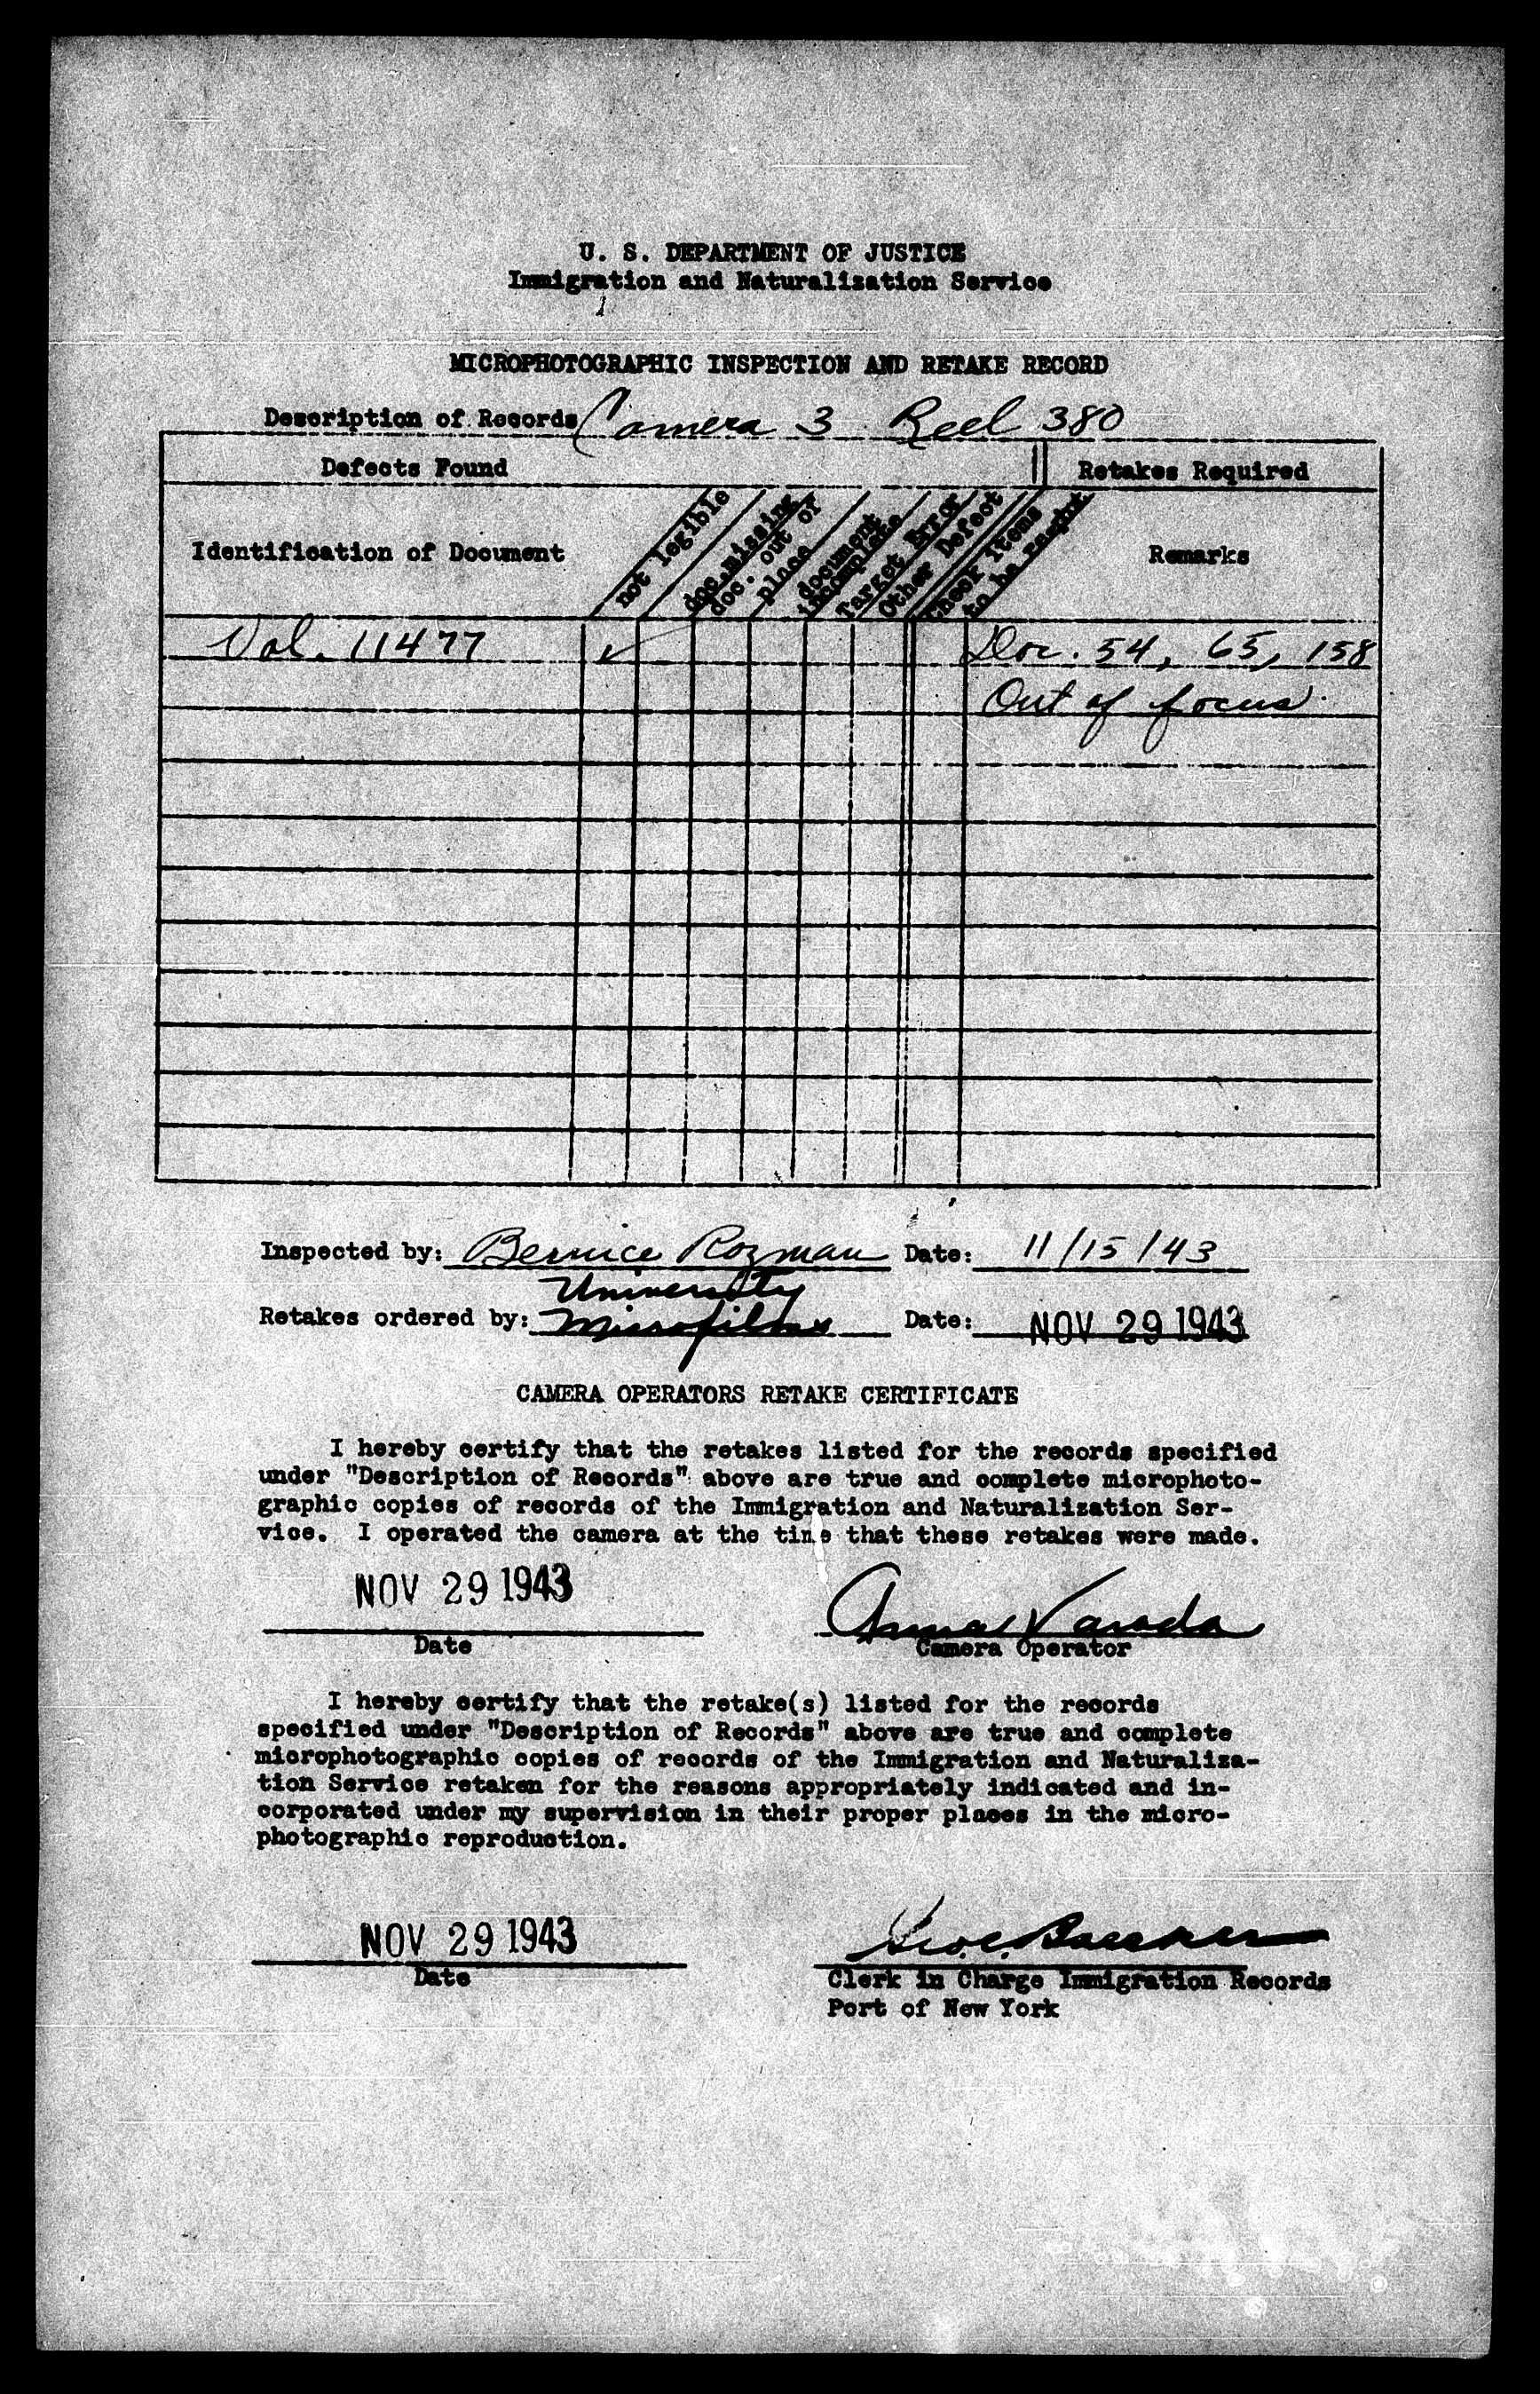 U. S. DEPARTMENT OF JUSTICE
Immigration and Naturalization Service
MICROPHOTOGRAPHIC INSPECTION AND RETAKE RECORD
Description of Records Camera 3 Reel 380
Defects Found Retakes Required
Identification of Document
not legible
doc. missing
doc. out of place
document incomplete
Target Error
Other Defect
Check items to be
Remarks
Vol. 11477 ✓ Doc. 54, 65, 158
Out of focus.
Inspected by: Bernice Rozman Date: 11/15/43
University
Retakes ordered by: Microfilms Date: NOV 29 1943
CAMERA OPERATORS RETAKE CERTIFICATE
I hereby certify that the retakes listed for the records specified
under "Description of Records" above are true and complete microphoto-
graphic copies of records of the Immigration and Naturalization Ser-
vice. I operated the camera at the time that these retakes were made.
NOV 29 1943 Anna Varada
Date Camera Operator
I hereby certify that the retake(s) listed for the records
specified under "Description of Records" above are true and complete
microphotographic copies of records of the Immigration and Naturaliza-
tion Service retaken for the reasons appropriately indicated and in-
corporated under my supervision in their proper places in the micro-
photographic reproduction.
NOV 29 1943
Date Clerk in Charge Immigration Records
Port of New York